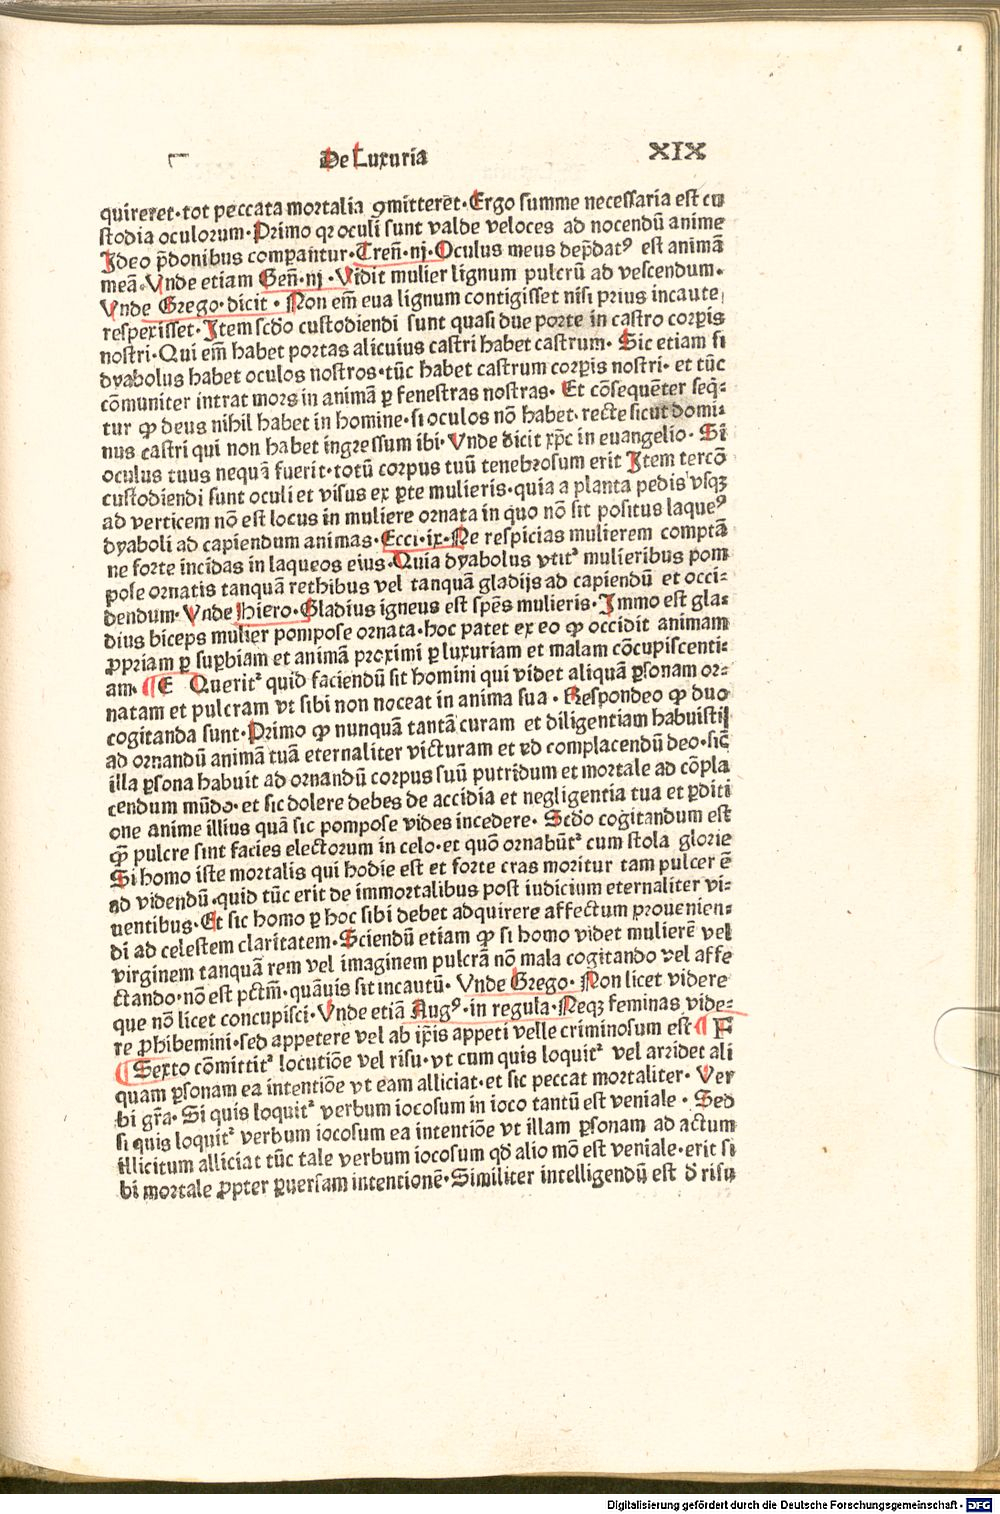 De Luxuria XIX
quireret·tot peccata mortalia ꝯmitterēt·Ergo summe necessaria est cu
stodia oculorum·Primo qꝛ oculi sunt valde veloces ad nocendū anime
Ideo p̄donibus compantur·Treñ·iij·Oculus meus dep̄datꝰ est animā
meā·Vnde etiam Geñ·iij·Vidit mulier lignum pulcrū ad vescendum·
Vnde Grego·dicit·Non em̄ eua lignum contigisset nisi prius incaute
respexisset·Item scdo custodiendi sunt quasi due porte in castro corpis
nostri·Qui em̄ habet portas alicuius castri habet castrum·Sic etiam si
dyabolus habet oculos nostros·tūc habet castrum corpis nostri·et tūc
cōmuniter intrat mors in animā ꝑ fenestras nostras·Et cōsequēter seq̄-
tur ꝙ deus nihil habet in homine·si oculos nō habet·recte sicut domi-
nus castri qui non habet ingressum ibi·Vnde dicit xp̄c in euangelio·Si
oculus tuus nequā fuerit·totū corpus tuū tenebrosum erit Item tercō
custodiendi sunt oculi et visus ex ꝑte mulieris·quia a planta pedis vsqꝫ
ad verticem nō est locus in muliere ornata in quo nō sit positus laqueꝰ
dyaboli ad capiendum animas·Ecci·ix·Ne respicias mulierem comptā
ne forte incidas in laqueos eius·Quia dyabolus vtitᷣ mulieribus pom
pose ornatis tanquā rethibus vel tanquā gladijs ad capiendū et occi-
dendum·Vnde Hiero·Gladius igneus est spēs mulieris·Immo est gla-
dius biceps mulier pompose ornata·hoc patet ex eo ꝙ occidit animam
ꝓpriam ꝑ suꝑbiam et animā proximi ꝑ luxuriam et malam cōcupiscenti-
am·¶ E Queritᷣ quid faciendū sit homini qui videt aliquā ꝑsonam or-
natam et pulcram vt sibi non noceat in anima sua·Respondeo ꝙ duo
cogitanda sunt·Primo ꝙ nunquā tantā curam et diligentiam habuisti
ad ornandū animā tuā eternaliter victuram et ed complacendū deo·sic̄
illa ꝑsona habuit ad ornandū corpus suū putridum et mortale ad cōpla
cendum mūdo·et sic dolere debes de accidia et negligentia tua et ꝑditi
one anime illius quā sic pompose vides incedere·Scdo cogitandum est
ꝙ̄ pulcre sint facies electorum in celo·et quō ornabūtᷣ cum stola glorie
Si homo iste mortalis qui hodie est et forte cras moritur tam pulcer ē
ad videndū·quid tūc erit de immortalibus post iudicium eternaliter vi-
uentibus·Et sic homo ꝑ hoc sibi debet adquirere affectum prouenien-
di ad celestem claritatem·Sciendū etiam ꝙ si homo videt mulierē vel
virginem tanquā rem vel imaginem pulcrā nō mala cogitando vel affe
ctando·nō est pctm̄·quāuis sit incautū·Vnde Grego·Non licet videre
que nō licet concupisci·Vnde etiā Augꝰ·in regula·Neqꝫ feminas vide-
re ꝓhibemini·sed appetere vel ab ip̄is appeti velle criminosum est ¶ F
¶ Sexto cōmittitᷣ locutiōe vel risu·vt cum quis loquitᷣ vel arridet ali
quam ꝑsonam ea intentiōe vt eam alliciat·et sic peccat mortaliter·Ver
bi gr̄a·Si quis loquitᷣ verbum iocosum in ioco tantū est veniale·Sed
si quis loquitᷣ verbum iocosum ea intentiōe vt illam ꝑsonam ad actum
illicitum alliciat tūc tale verbum iocosum qd̄ alio mō est veniale·erit si
bi mortale ꝓpter ꝑuersam intentionē·Similiter intelligendū est d̄ risu
Digitalisierung gefördert durch die Deutsche Forschungsgemeinschaft - DFG